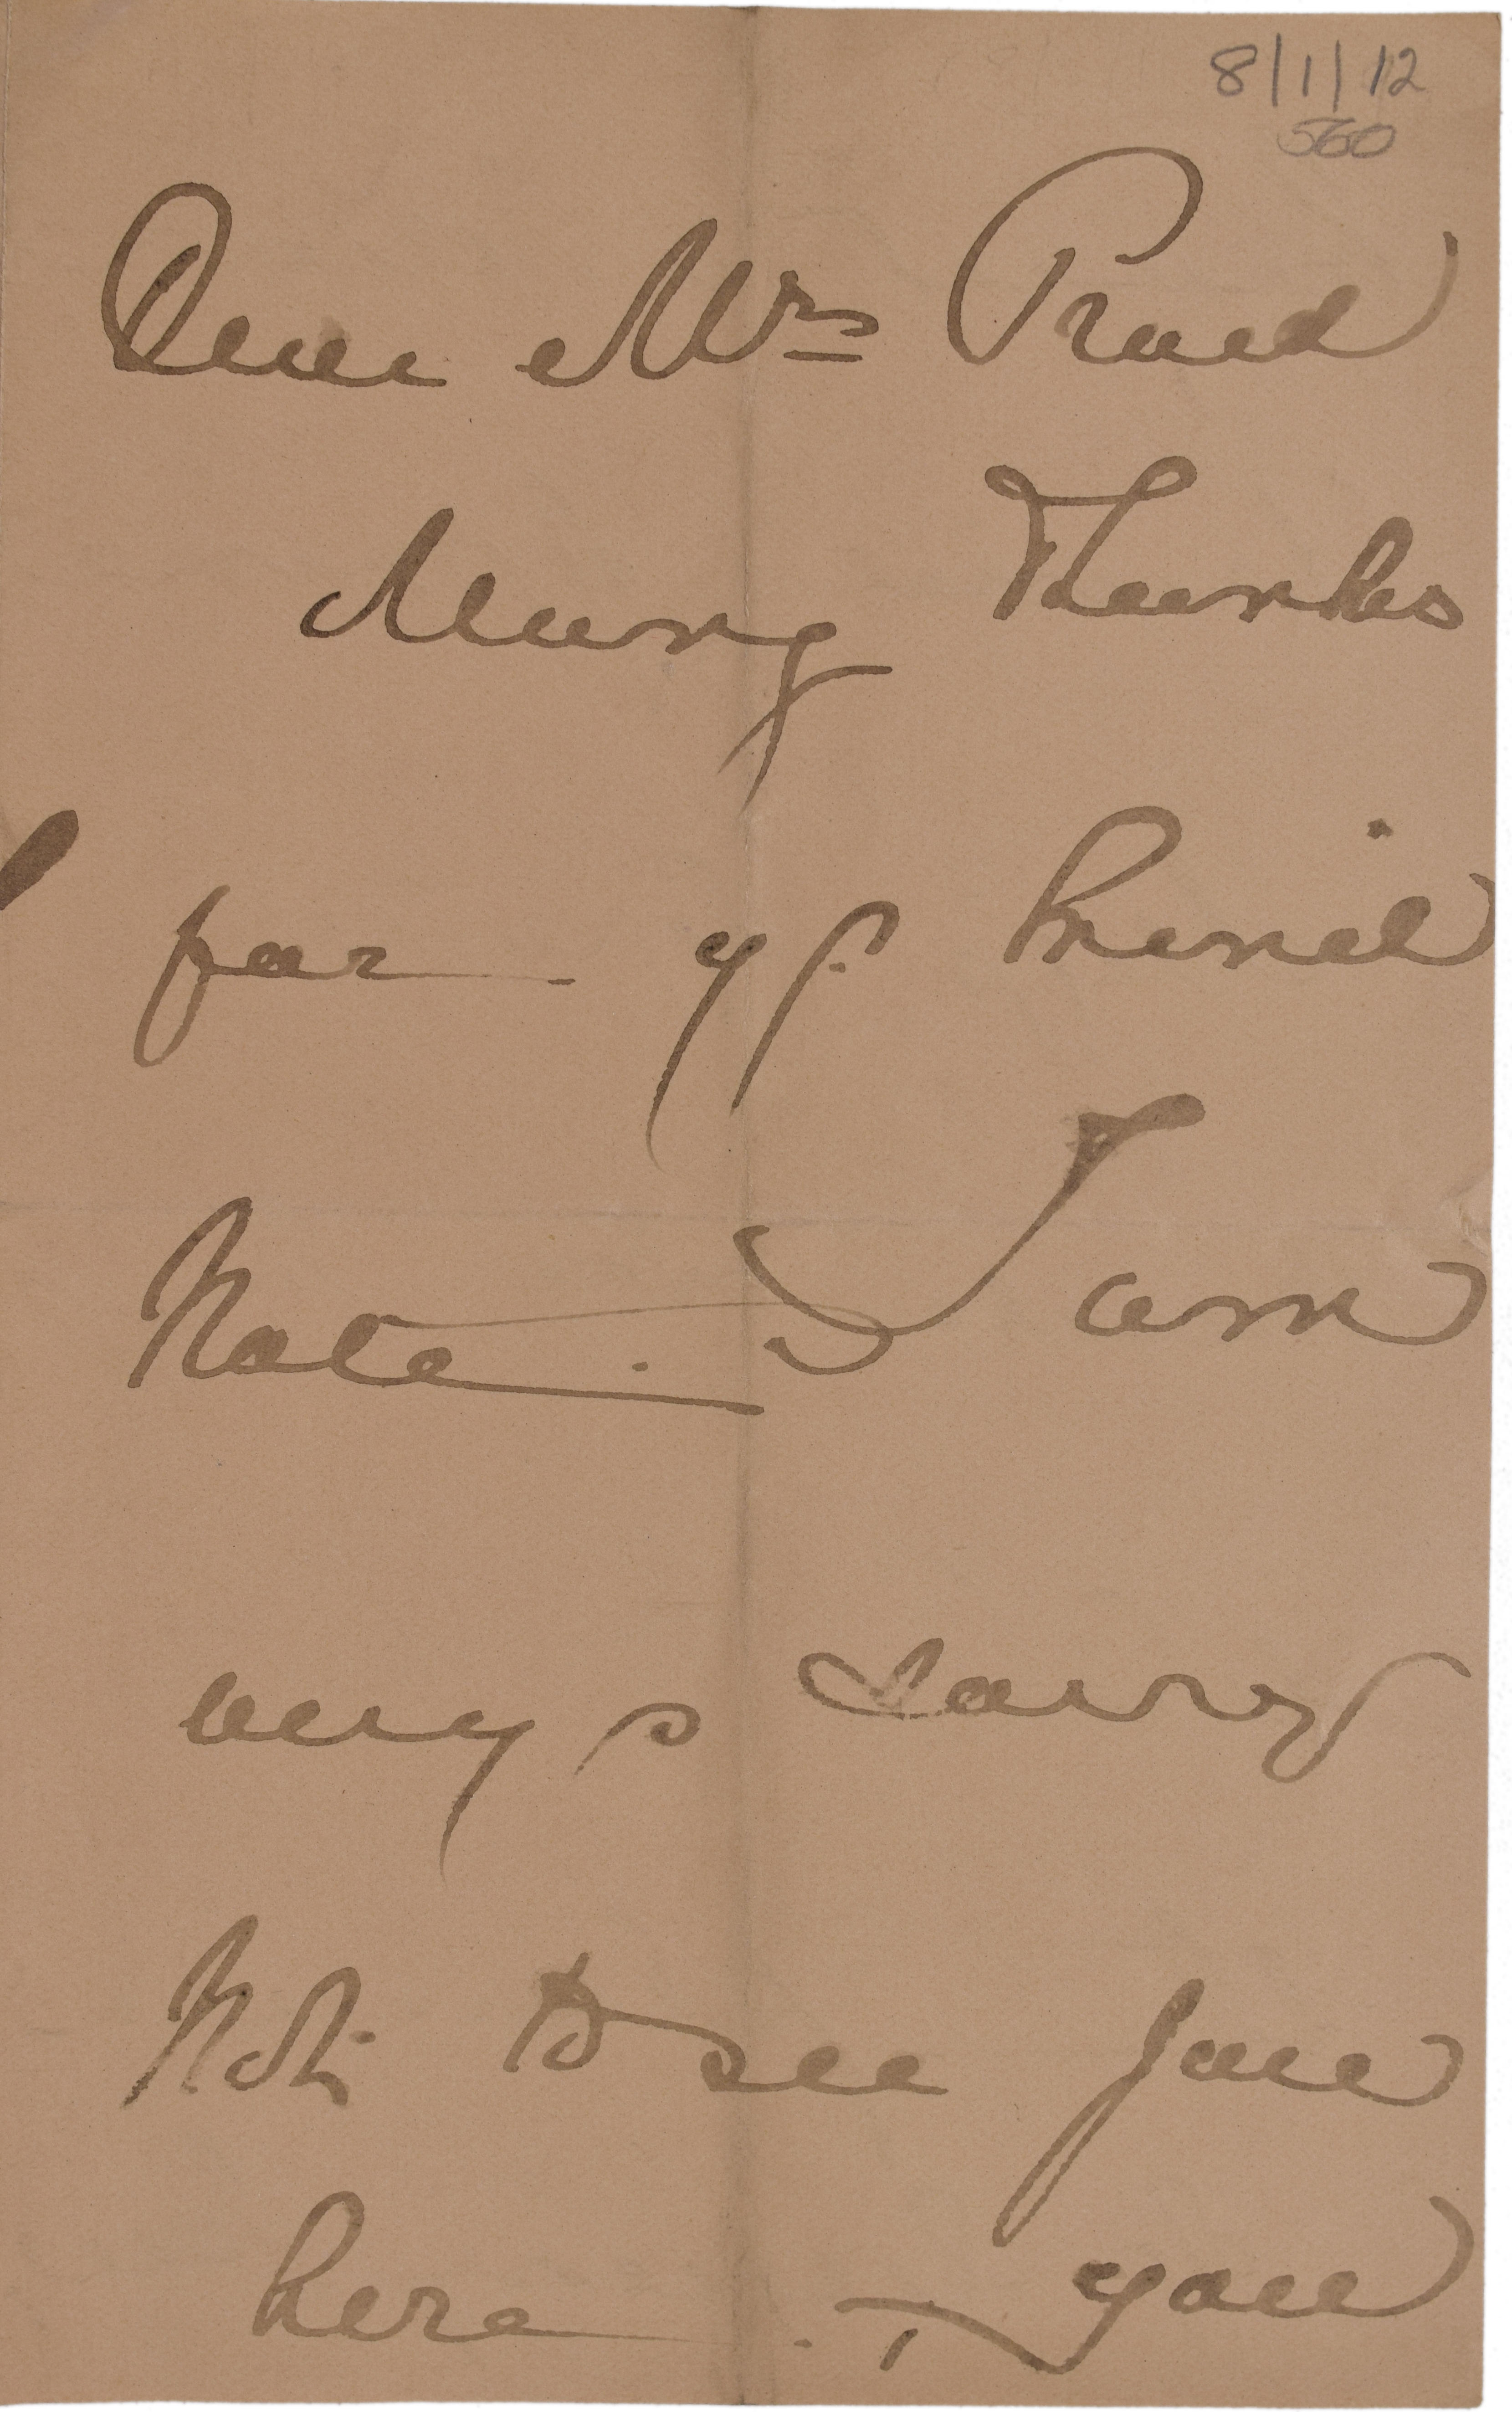 8/1/12
560
Dear Mrs Praed
Many Thanks
for yr. kind
Note. I am
very sorry
Not to see you
here. you